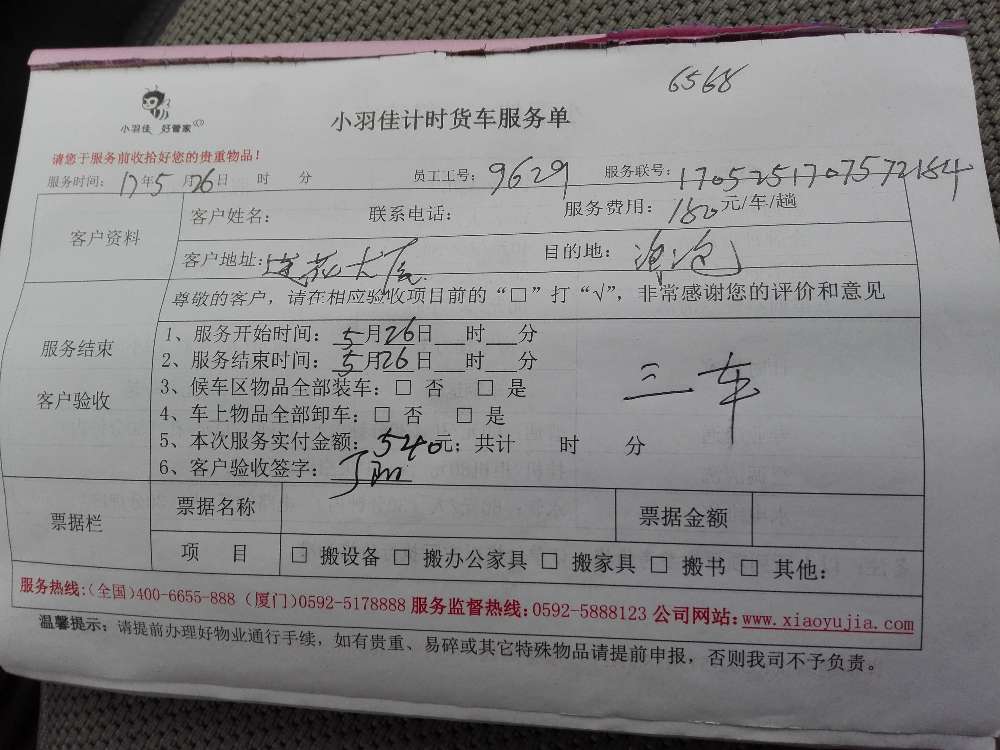 6568
小羽佳 好管家
小羽佳计时货车服务单
请您于服务前收拾好您的贵重物品！
服务时间：17年5月26日 时 分 员工工号：9629 服务联号：1705251707572184
客户资料
客户姓名： 联系电话： 服务费用：180元/车/趟
客户地址：莲花大厦 目的地：
尊敬的客户，请在相应验收项目前的“□”打“√”，非常感谢您的评价和意见
服务结束
客户验收
1、服务开始时间：5月26日___时___分
2、服务结束时间：5月26日___时___分
3、候车区物品全部装车：□ 否 □ 是
4、车上物品全部卸车：□ 否 □ 是
5、本次服务实付金额：540元；共计 时 分
6、客户验收签字：
三车
票据栏
票据名称 票据金额
项 目 □ 搬设备 □ 搬办公家具 □ 搬家具 □ 搬书 □ 其他：
服务热线：（全国）400-6655-888（厦门）0592-5178888 服务监督热线：0592-5888123 公司网站：www.xiaoyujia.com
温馨提示：请提前办理好物业通行手续，如有贵重、易碎或其它特殊物品请提前申报，否则我司不予负责。